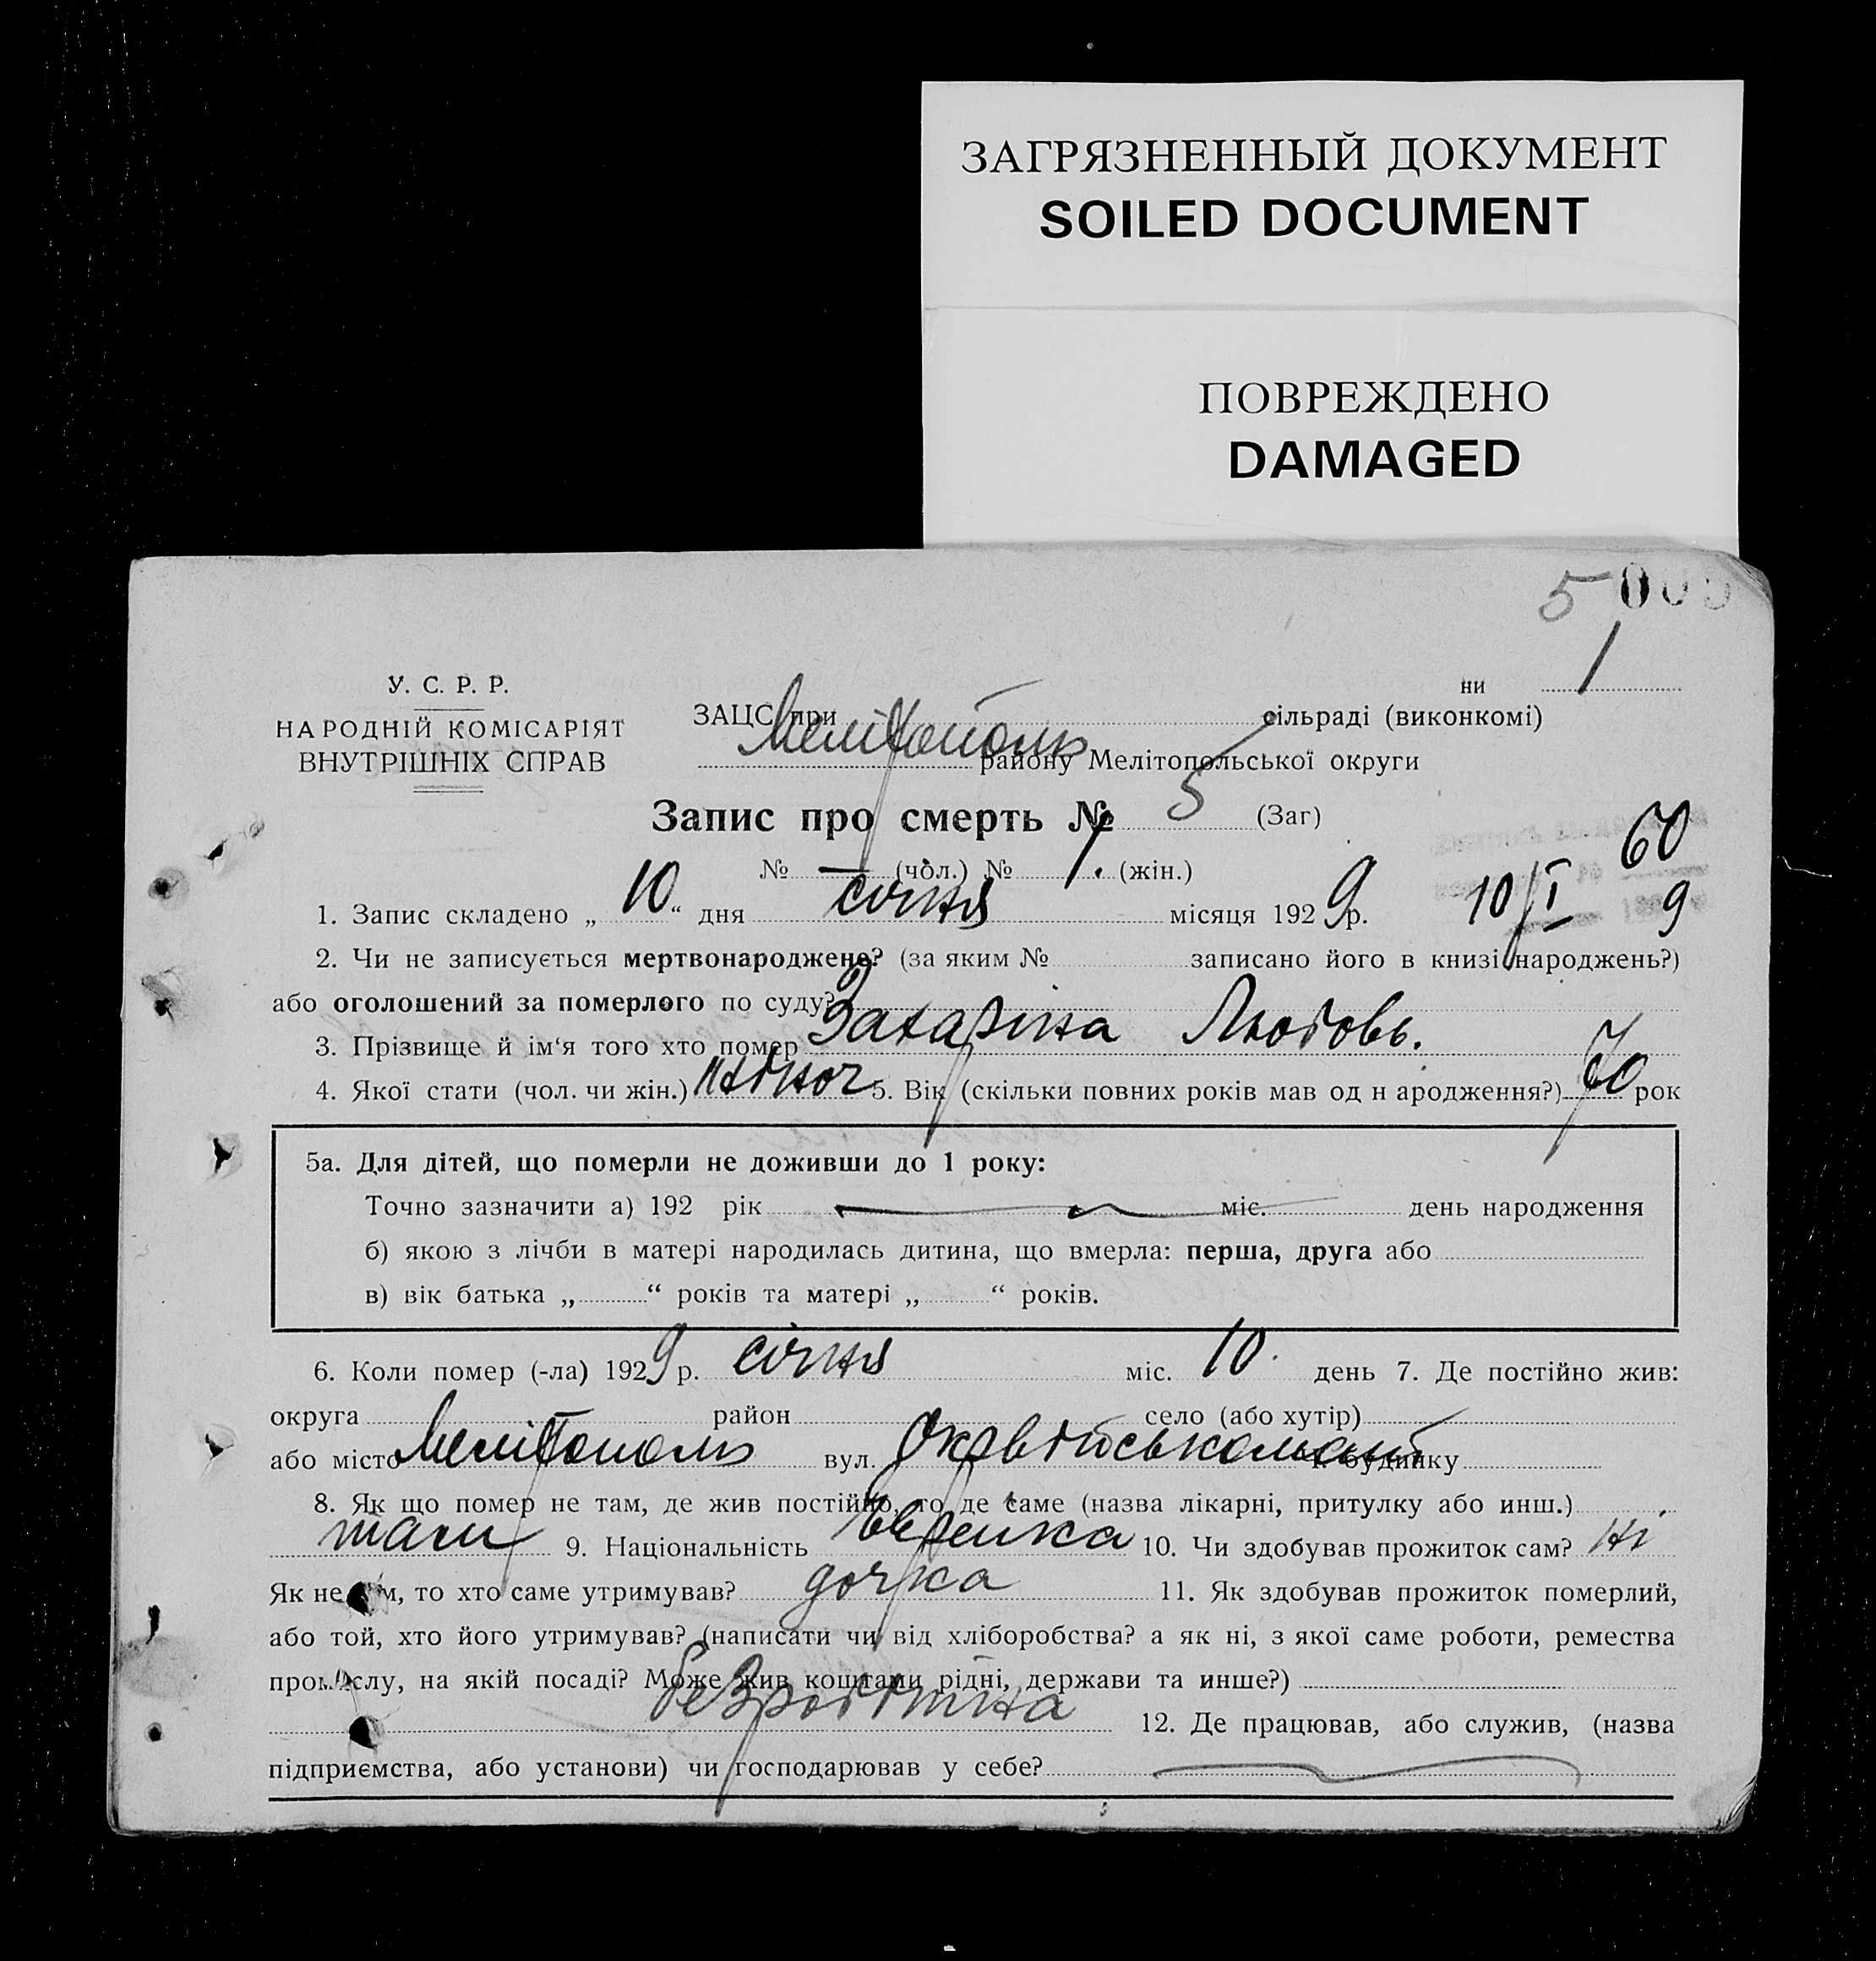 ЗАГРЯЗНЕННЫЙ ДОКУМЕНТ
SOILED DOCUMENT
ПОВРЕЖДЕНО
DAMAGED
5 005
ни 1
У. С. Р. Р.
НАРОДНІЙ КОМІСАРІЯТ
ВНУТРІШНІХ СПРАВ
ЗАЦС при сільраді (виконкомі)
Мелітополь району Мелітопольської округи
Запис про смерть № 5 (Заг)
60
№ — (чол.) № 1. (жін.)
1. Запис складено „ 10 “ дня січня місяця 1929 р. 10/I 9
2. Чи не записується мертвонароджене? (за яким № записано його в книзі народжень?)
або оголошений за померлого по суду?
3. Прізвище й ім‘я того хто помер Захаріна Любовь.
4. Якої стати (чол. чи жін.) жіноч 5. Вік (скільки повних років мав од н ародження?) 70 рок
5а. Для дітей, що померли не доживши до 1 року:
Точно зазначити а) 192 рік міс. день народження
б) якою з лічби в матері народилась дитина, що вмерла: перша, друга або
в) вік батька „ “ років та матері „ “ років.
6. Коли помер (-ла) 1929 р. січня міс. 10. день 7. Де постійно жив:
округа район село (або хутір)
або місто Мелітополь вул. будинку
8. Як що помер не там, де жив постійно, то де саме (назва лікарні, притулку або инш.)
там 9. Національність Еврейка 10. Чи здобував прожиток сам? ні
Як не сам, то хто саме утримував? дочка 11. Як здобував прожиток померлий,
або той, хто його утримував? (написати чи від хліборобства? а як ні, з якої саме роботи, ремества
промислу, на якій посаді? Може жив коштами рідні, держави та инше?)
безробітна 12. Де працював, або служив, (назва
підприємства, або установи) чи господарював у себе?